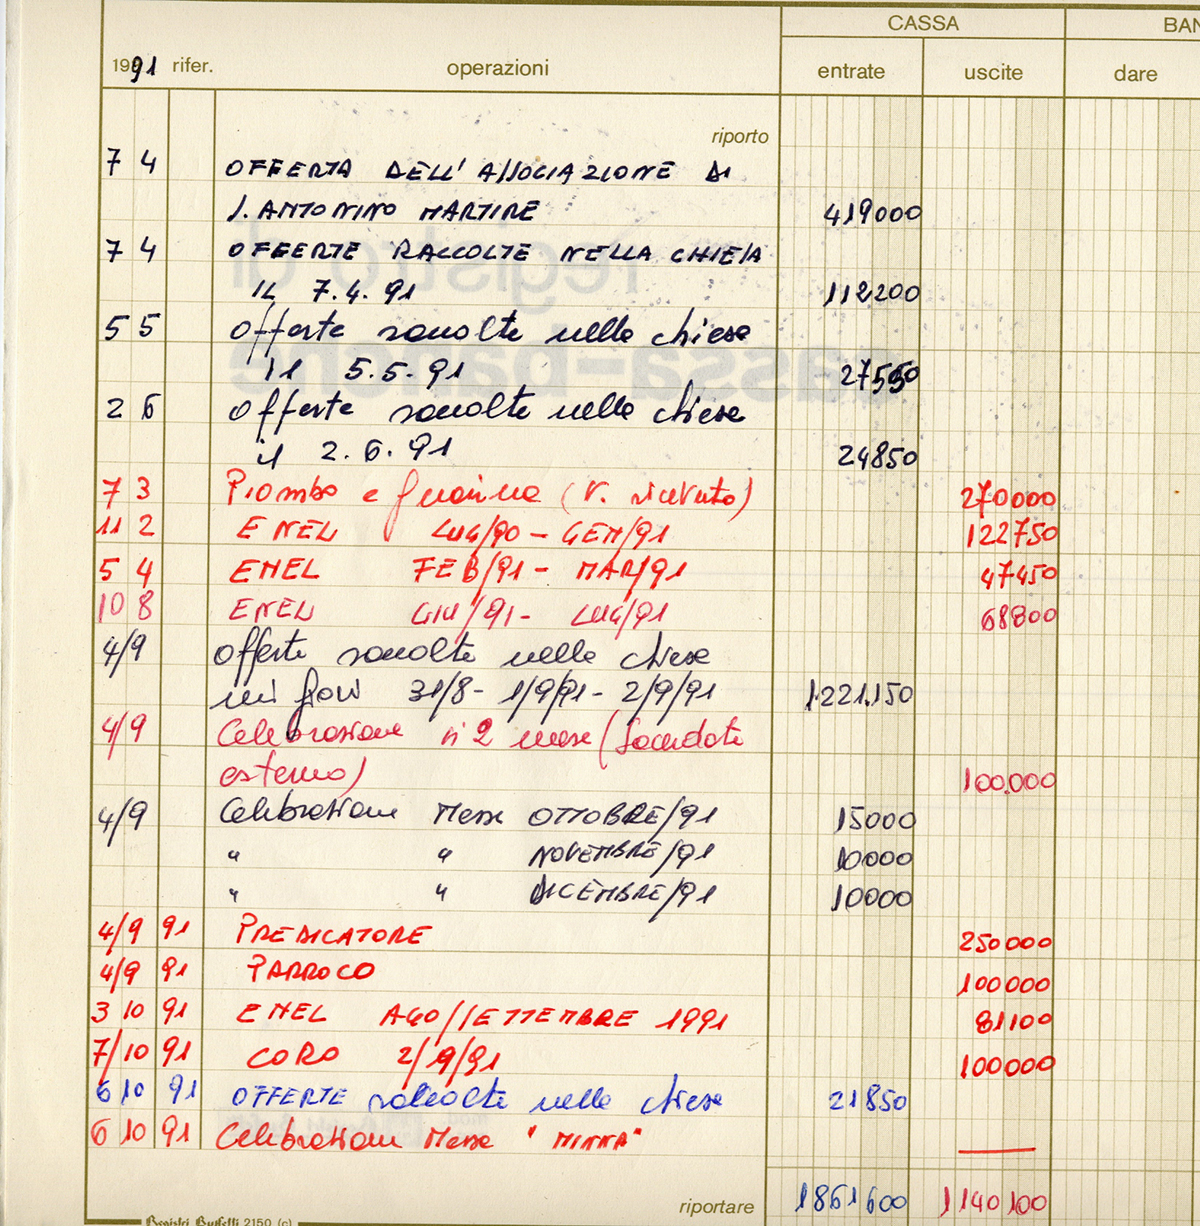 CASSA BAN
1991 rifer. operazioni entrate uscite dare
riporto
7 4 OFFERTA DELL'ASSOCIAZIONE DI
S. ANTONINO MARTIRE 419000
7 4 OFFERTE RACCOLTE NELLA CHIESA
IL 7.4.91 112200
5 5 offerte raccolte nelle chiese
il 5.5.91 27550
2 6 offerte raccolte nelle chiese
il 2.6.91 24850
7 3 Piombo e (V. ricevuta) 270000
11 2 ENEL LUG/90 - GEN/91 122750
5 4 ENEL FEB/91 - MAR/91 47450
10 8 ENEL GIU/91 - LUG/91 68800
4/9 offerte raccolte nelle chiese
nei giorni 31/8 - 1/9/91 - 2/9/91 1.221.150
4/9 Celebrazione n° 2 messe (Sacerdote
esterno) 100.000
4/9 Celebrazione Messe OTTOBRE/91 15000
" " NOVEMBRE/91 10000
" " DICEMBRE/91 10000
4/9 91 PREDICATORE 250000
4/9 91 PARROCO 100000
3 10 91 ENEL AGO/SETTEMBRE 1991 81100
7/10 91 CORO 2/9/91 100000
6 10 91 OFFERTE raccolte nelle chiese 21850
6 10 91 Celebrazione Messe "MINNA"
riportare 1861600 1140100
Registri Buffetti 2150 (c)